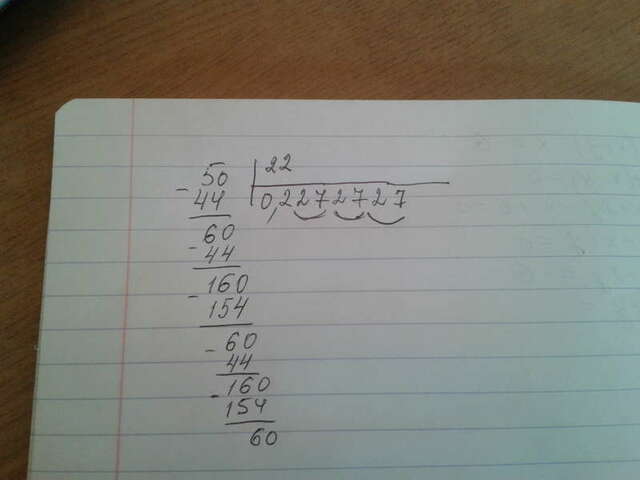 50 | 22
- 44 | 0,2272727
60
- 44
160
- 154
60
- 44
160
- 154
60